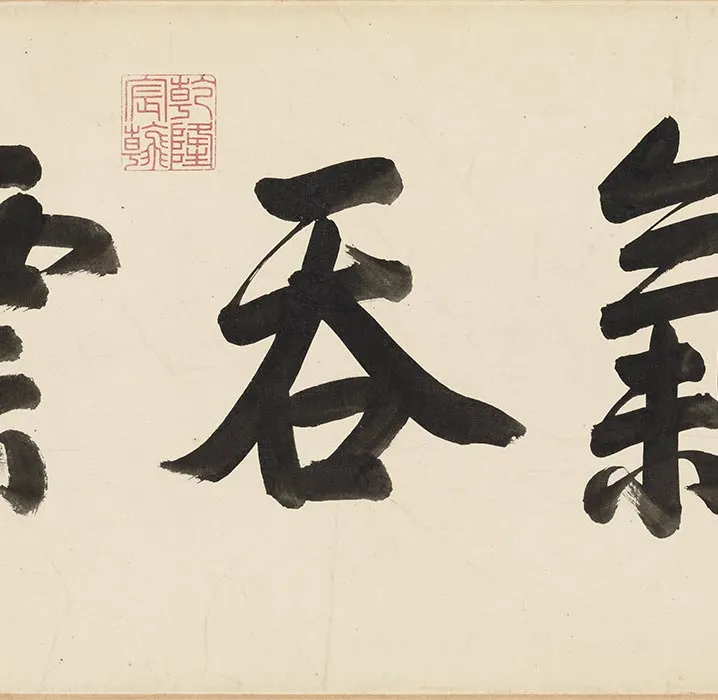 氣吞雲
乾隆
宸翰